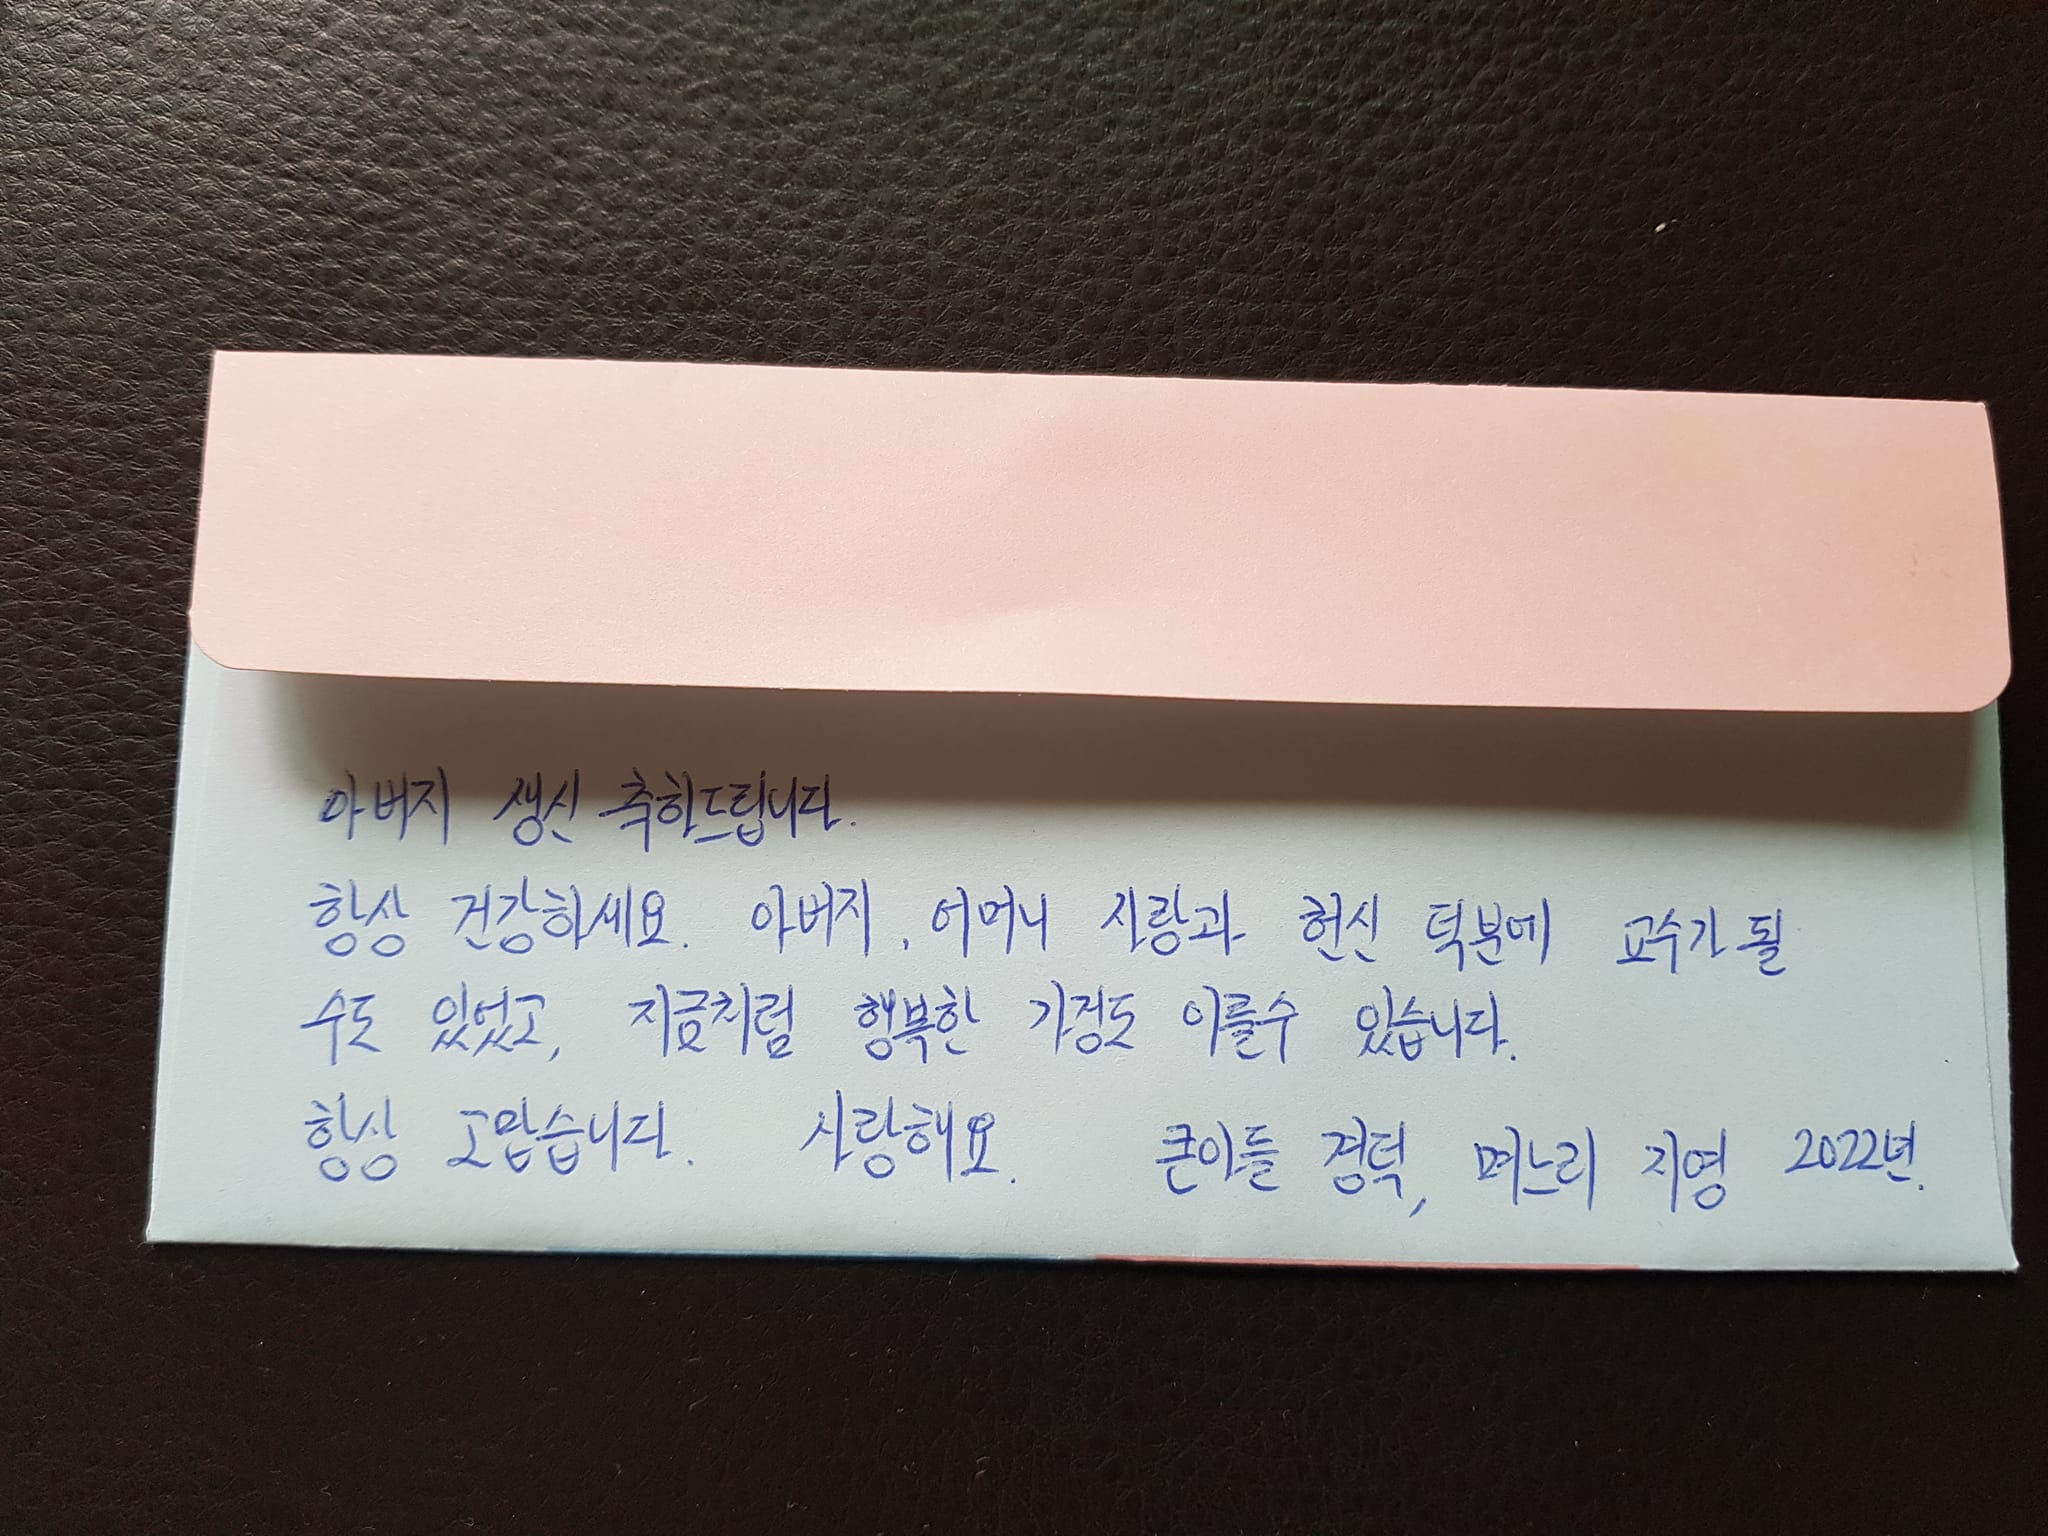 아버지 생신 축하드립니다.
항상 건강하세요. 아버지, 어머니 사랑과 헌신 덕분에 교수가 될
수도 있었고, 지금처럼 행복한 가정도 이룰수 있습니다.
항상 고맙습니다. 사랑해요. 큰아들 경덕, 며느리 지영 2022년.